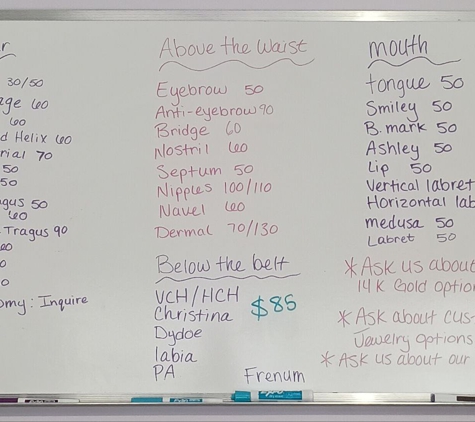 r
30/50
ge 60
60
d Helix 60
rial 70
50
50
gus 50
60
Tragus 90
60
0
0
omy: Inquire
Above the Waist
Eyebrow 50
Anti-eyebrow 90
Bridge 60
Nostril 60
Septum 50
Nipples 100/110
Navel 60
Dermal 70/130
Below the belt
VCH/HCH
Christina $85
Dydoe
labia
PA
Frenum
mouth
tongue 50
Smiley 50
B.mark 50
Ashley 50
Lip 50
Vertical labret
Horizontal lab
medusa 50
Labret 50
*Ask us about
14K Gold option
*Ask about cus-
Jewelry options
*Ask us about our